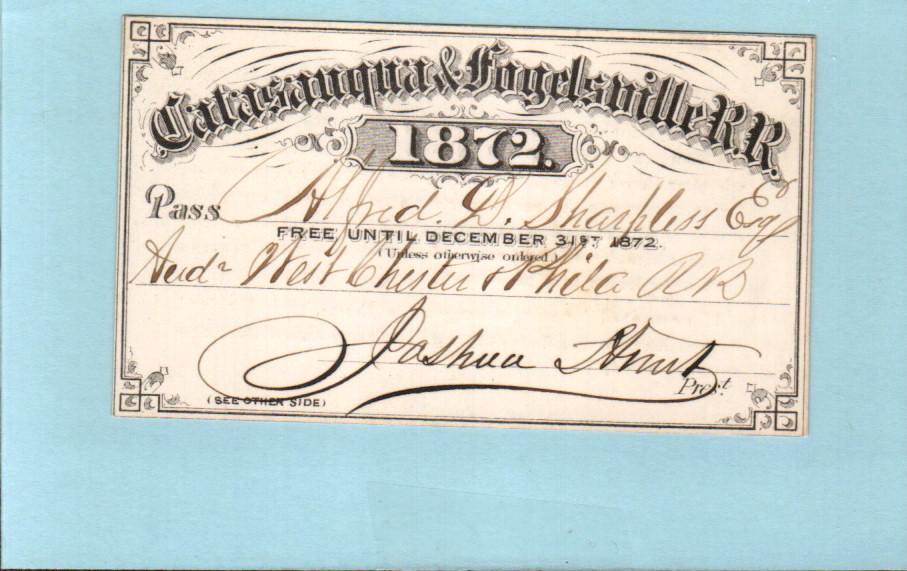 Catasauqua & Fogelsville R.R.
1872.
Pass Alfred. D. Sharpless Esq
FREE UNTIL DECEMBER 31ST 1872.
(Unless otherwise ordered)
Audr West Chester & Phila RR
Joshua Hunt
Prest.
(SEE OTHER SIDE)